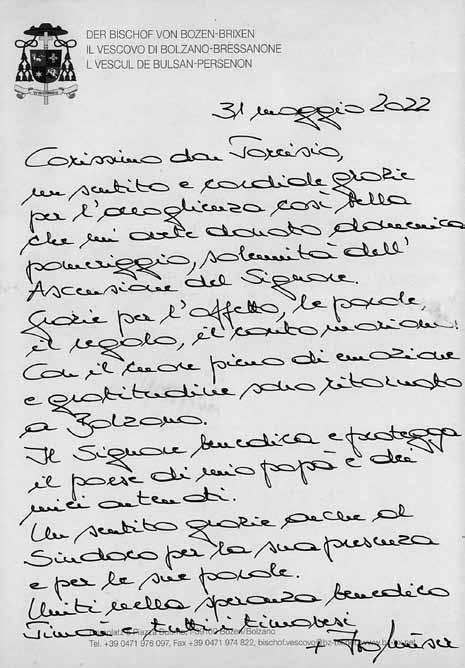 DER BISCHOF VON BOZEN-BRIXEN
IL VESCOVO DI BOLZANO-BRESSANONE
L VESCUL DE BULSAN-PERSENON
31 maggio 2022
Carissimo don Tarcisio,
un sentito e cordiale grazie
per l'accoglienza così bella
che mi avete donato domenica
pomeriggio, solennità dell'
Ascensione del Signore.
Grazie per l'affetto, le parole,
il regalo, il canto mariano!
Con il cuore pieno di emozione
e gratitudine sono ritornato
a Bolzano.
Il Signore benedica e protegga
il paese di mio papà e dei
miei antenati.
Un sentito grazie anche al
Sindaco per la sua presenza
e per le sue parole.
Uniti nella speranza benedico
Timau e tutti i timavesi
+ Ivo Muser
Piazza Duomo, Bozen/Bolzano
Tel. +39 0471 976 097, Fax +39 0471 974 822, bischof.vescovo@bz-bx.net